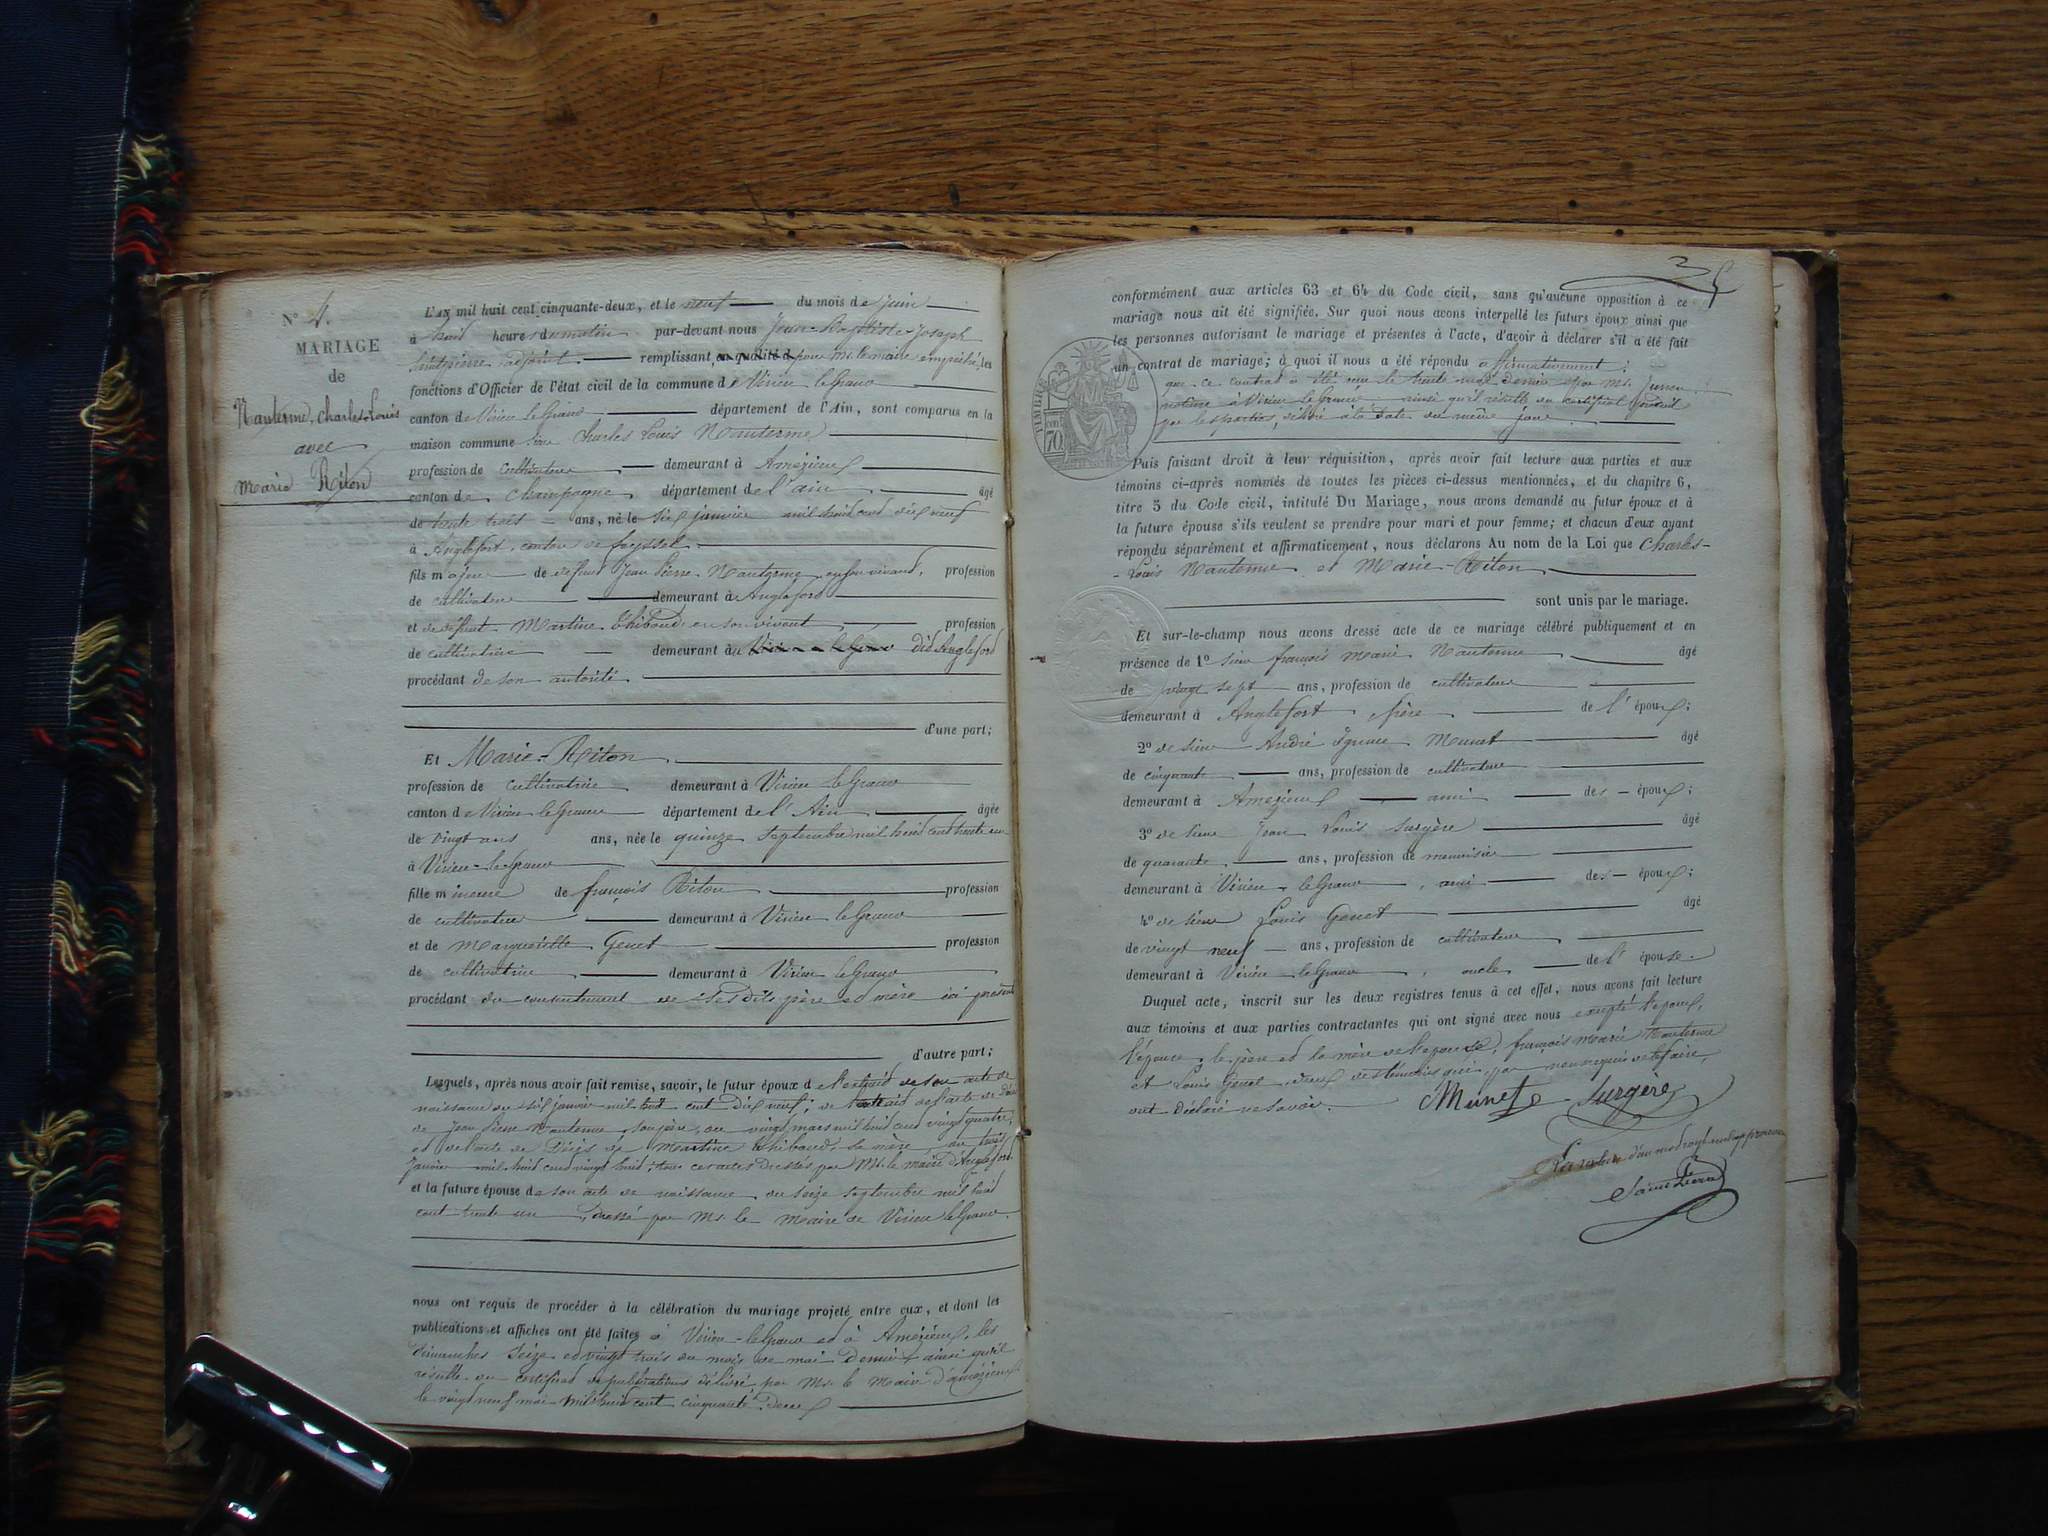 N° 4.
MARIAGE
de
Nanterme, Charles-Louis
avec
Marie Riton
L'AN mil huit cent cinquante-deux, et le neuf du mois de juin
à huit heures du matin par-devant nous Jean-Baptiste-Joseph
adjoint. remplissant en qualité d pour Mr. le maire empêché, les
fonctions d'Officier de l'état civil de la commune de Virieu le Grand
canton de Virieu le Grand département de l'Ain, sont comparus en la
maison commune sieur Charles Louis Nanterme
profession de cultivateur demeurant à Amézieux
canton de Champagne département de l'ain âgé
de trente trois ans, né le six janvier mil huit cent dix neuf
à Anglefort, canton de Seyssel
fils majeur de defunt Jean Pierre Nanterme en son vivant, profession
de cultivateur demeurant à Anglefort
et de défunt Martine Thibaud en son vivant profession
de cultivatrice demeurant à Virieu le Grand dit Anglefort
procédant de son autorité
d'une part;
Et Marie-Riton
profession de cultivatrice demeurant à Virieu le Grand
canton de Virieu le Grand département de l'Ain âgée
de vingt ans ans, née le quinze septembre mil huit cent trente un
à Virieu-le Grand
fille mineure de françois Riton profession
de cultivateur demeurant à Virieu le Grand
et de Margueritte Genet profession
de cultivatrice demeurant à Virieu le Grand
procédant du consentement de ses dits père et mère ici présents
d'autre part;
Lesquels, après nous avoir fait remise, savoir, le futur époux de l'extrait de son acte de
naissance du six janvier mil huit cent dix neuf; de l'extrait de l'acte de Décès
de Jean Pierre Nanterme son père, du vingt mars mil huit cent vingt quatre,
et de l'acte de Décès de Martine Thibaud sa mère du trois
janvier mil huit cent vingt huit, tous ces actes dressés par Mr. le maire d'Anglefort
et la future épouse de son acte de naissance du seize septembre mil huit
cent trente un, dressé par Mr. le Maire de Virieu le Grand.
nous ont requis de procéder à la célébration du mariage projeté entre eux, et dont les
publications et affiches ont été faites à Virieu-le Grand et à Amézieux, les
dimanches seize et vingt trois du mois de mai dernier ainsi qu'il
résulte du certificat de publications délivré par Mr. le Maire d'amézieux
le vingt neuf mai mil huit cent cinquante deux
conformément aux articles 63 et 64 du Code civil, sans qu'aucune opposition à ce
mariage nous ait été signifiée. Sur quoi nous avons interpellé les futurs époux ainsi que
les personnes autorisant le mariage et présentes à l'acte, d'avoir à déclarer s'il a été fait
un contrat de mariage; à quoi il nous a été répondu affirmativement;
que ce contrat a été reçu le trente mai dernier par Mr.
notaire à Virieu le Grand ainsi qu'il résulte du certificat produit
par les parties, délivré à la date du même jour
TIMBRE
70
Puis faisant droit à leur réquisition, après avoir fait lecture aux parties et aux
témoins ci-après nommés de toutes les pièces ci-dessus mentionnées, et du chapitre 6,
titre 5 du Code civil, intitulé Du Mariage, nous avons demandé au futur époux et à
la future épouse s'ils veulent se prendre pour mari et pour femme; et chacun d'eux ayant
répondu séparément et affirmativement, nous déclarons Au nom de la Loi que Charles-
-Louis Nanterme et Marie-Riton
sont unis par le mariage.
Et sur-le-champ nous avons dressé acte de ce mariage célébré publiquement et en
présence de 1° sieur françois Marie Nanterme âgé
de vingt sept ans, profession de cultivateur
demeurant à Anglefort frère de l'époux;
2° de sieur André Ignace Munet âgé
de cinquante ans, profession de cultivateur
demeurant à Amézieux ami des époux;
3° de sieur Jean Louis Surgère âgé
de quarante ans, profession de menuisier
demeurant à Virieu le Grand, ami des époux;
4° de sieur Louis Genet âgé
de vingt neuf ans, profession de cultivateur
demeurant à Virieu le Grand, oncle de l'épouse.
Duquel acte, inscrit sur les deux registres tenus à cet effet, nous avons fait lecture
aux témoins et aux parties contractantes qui ont signé avec nous excepté l'époux,
l'épouse, le père et la mère de l'epouse, françois Marie Nanterme
et Louis Genet, deux des temoins qui, par nous requis de le faire,
ont déclaré ne savoir.
Munet Surgère